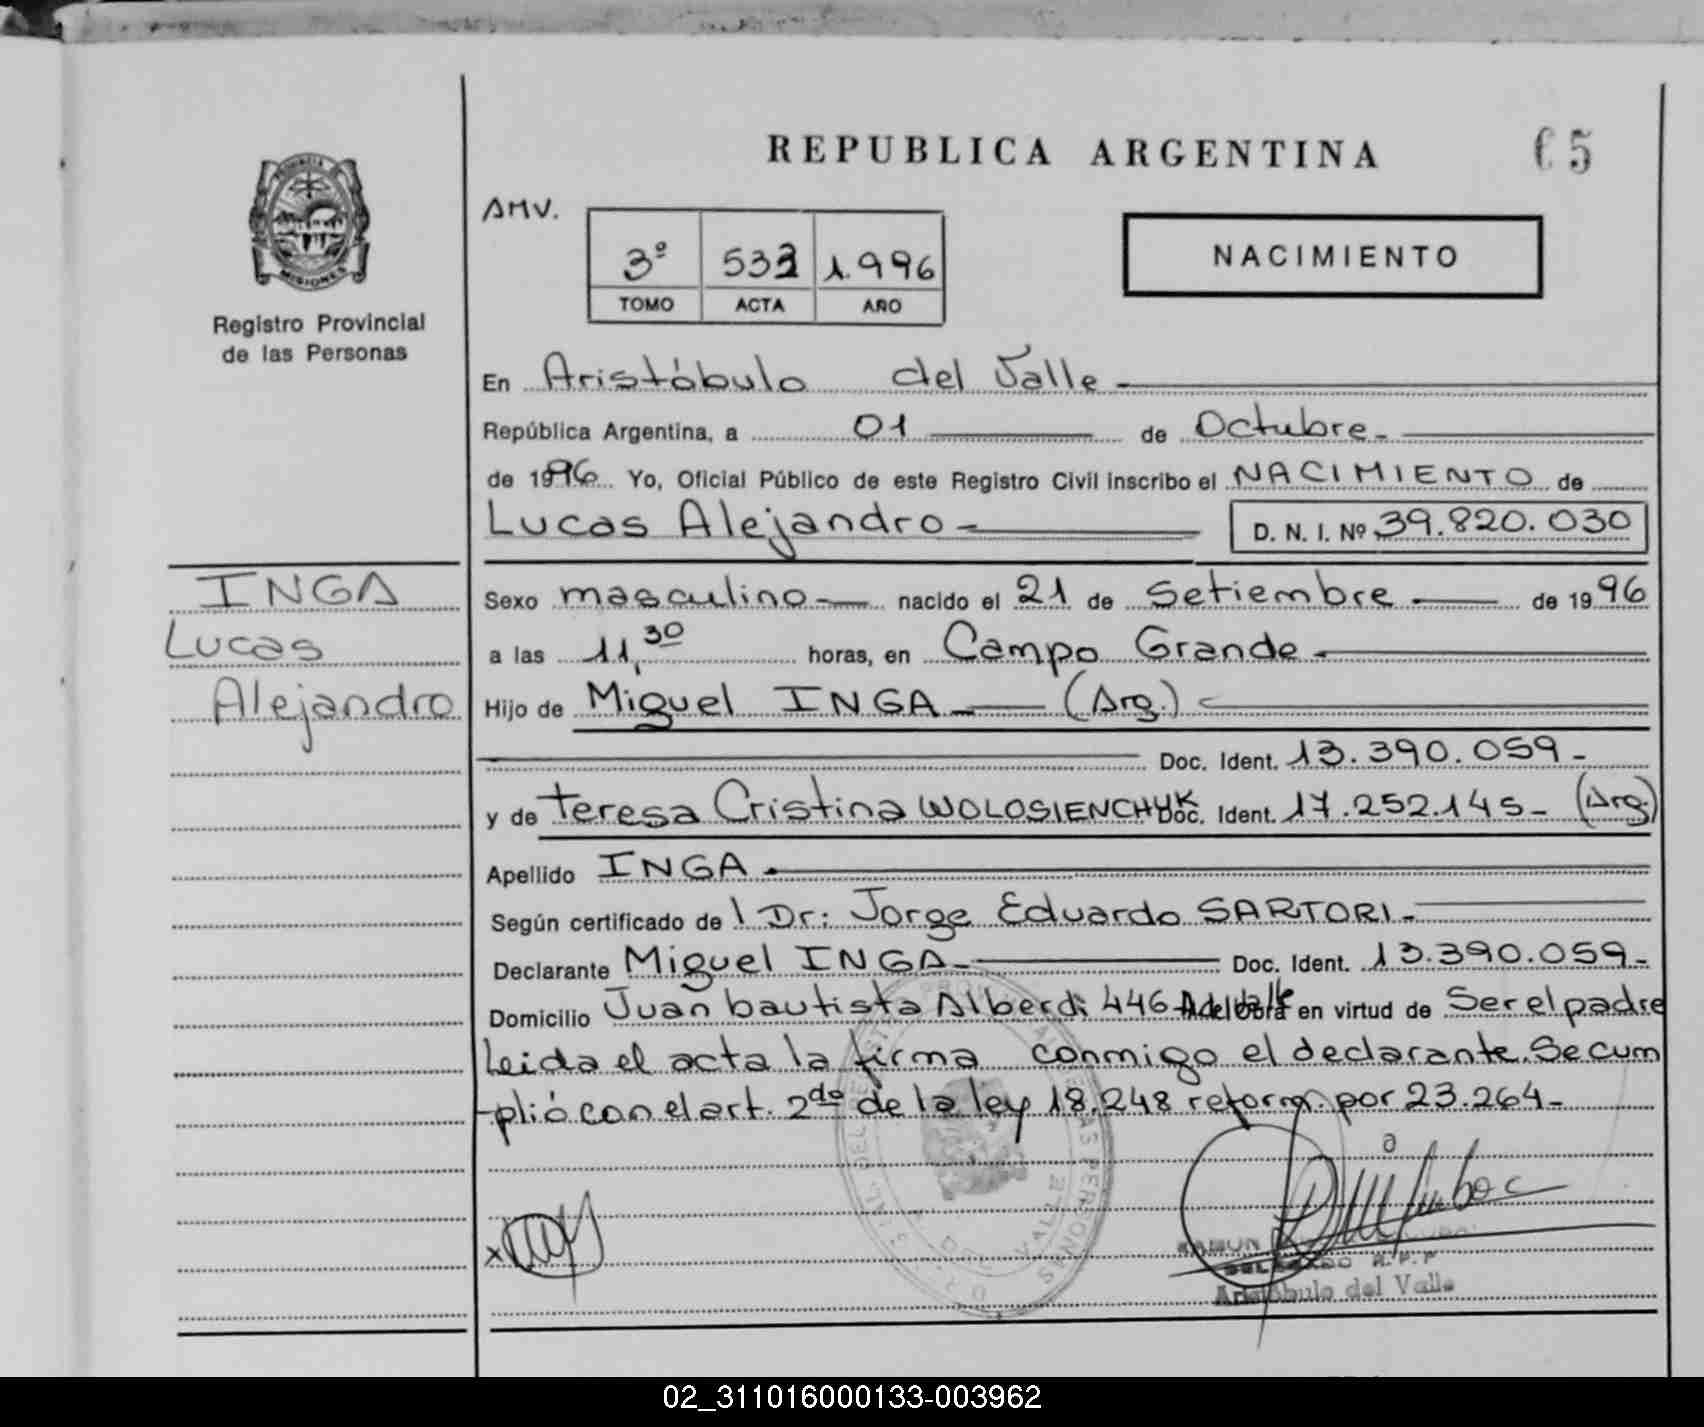 REPUBLICA ARGENTINA
65
PROVINCIA
MISIONES
Registro Provincial
de las Personas
AMV.
3º 533 1.996
TOMO ACTA AÑO
NACIMIENTO
En Aristóbulo del Valle
República Argentina, a 01 de Octubre
de 1996 Yo, Oficial Público de este Registro Civil inscribo el NACIMIENTO de
Lucas Alejandro D. N. I. Nº 39.820.030
INGA
Lucas
Alejandro
Sexo masculino nacido el 21 de Setiembre de 1996
a las 11,30 horas, en Campo Grande
Hijo de Miguel INGA (Arg.)
Doc. Ident. 13.390.059
y de teresa Cristina WOLOSIENCHUK Doc. Ident. 17.252.145 (Arg.)
Apellido INGA
Según certificado de l Dr: Jorge Eduardo SARTORI
Declarante Miguel INGA Doc. Ident. 13.390.059
Domicilio Juan bautista Alberdi 446 A del Valle en virtud de Ser el padre
Leida el acta la firma conmigo el declarante. Se cum
plió con el art. 2do de la ley 18.248 reform. por 23.264
x
RAMON
DELEGADO R.P.P
Aristóbulo del Valle
02_311016000133-003962